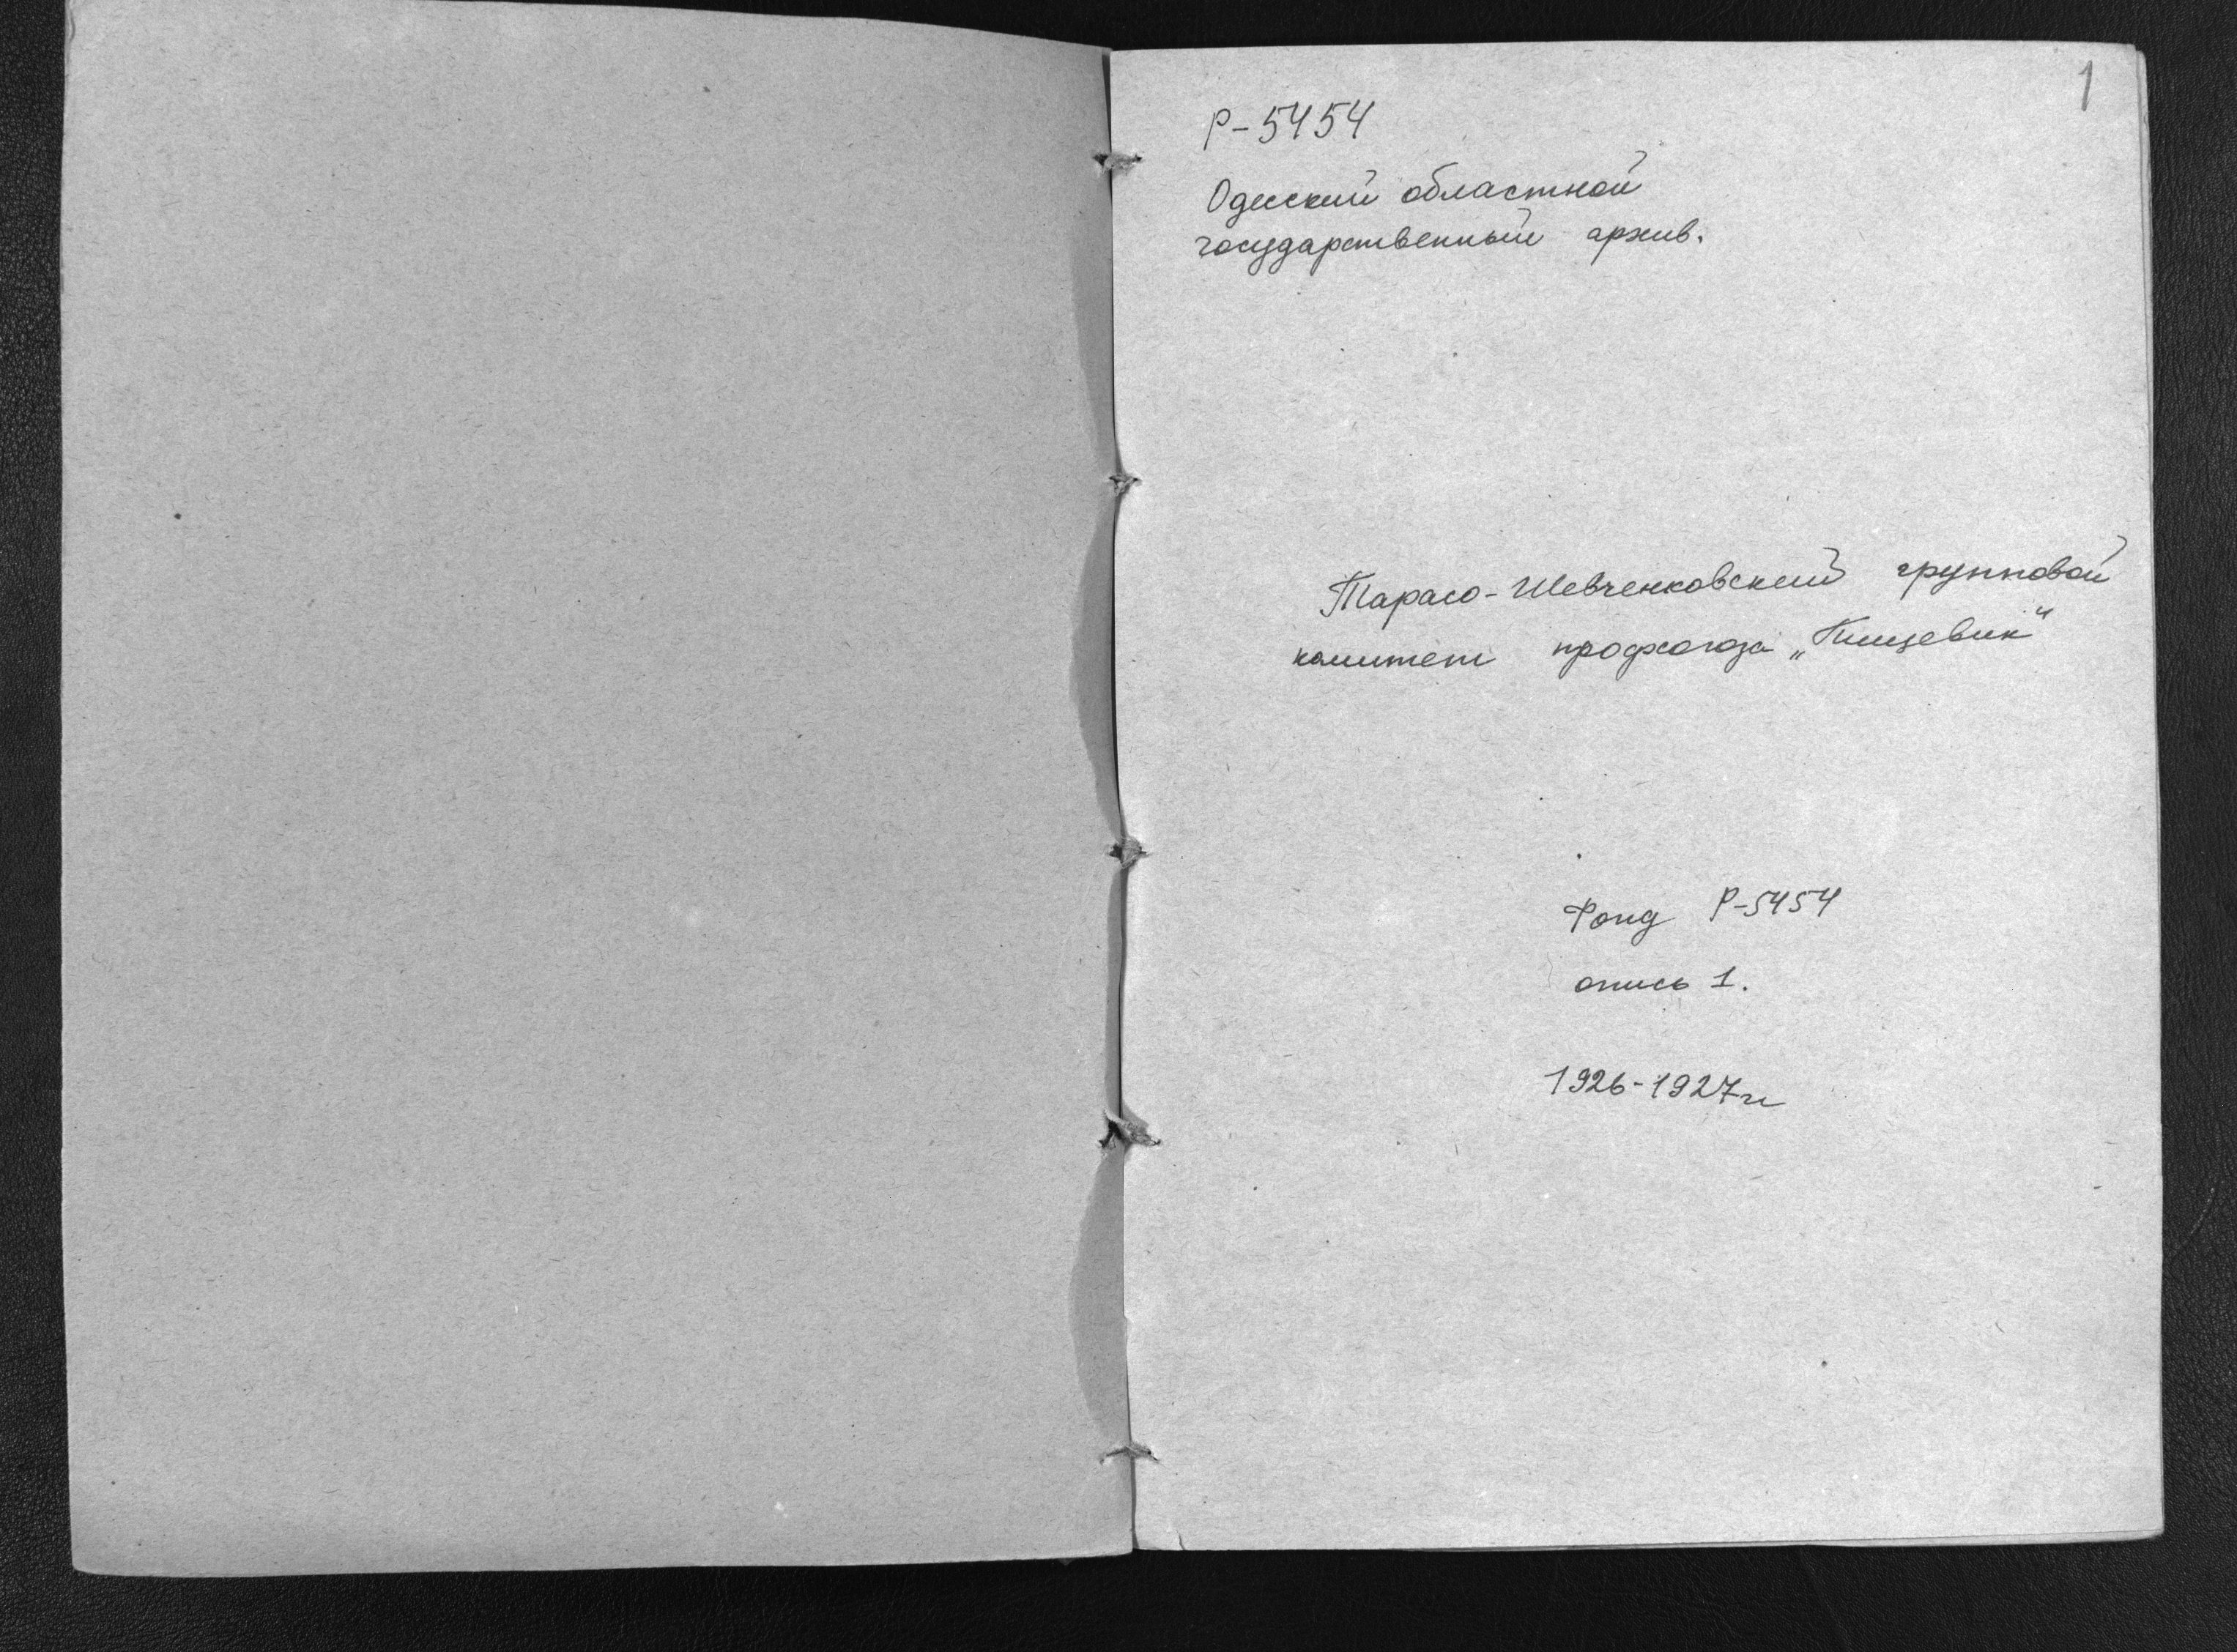 1
Р-5454
Одесский областной
государственный архив.
Тарасо-Шевченковский групповой
комитет профсоюза „Пищевик“
Фонд Р-5454
опись 1.
1926-1927гг